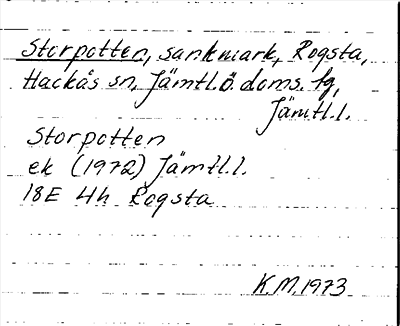 Storpotten, sankmark, Rogsta,
Hackås sn, Jämtl.ö. doms. fg,
Jämtl.l.
Storpotten
ek (1972) Jämtl.l.
18E 4h Rogsta
K.M. 1973